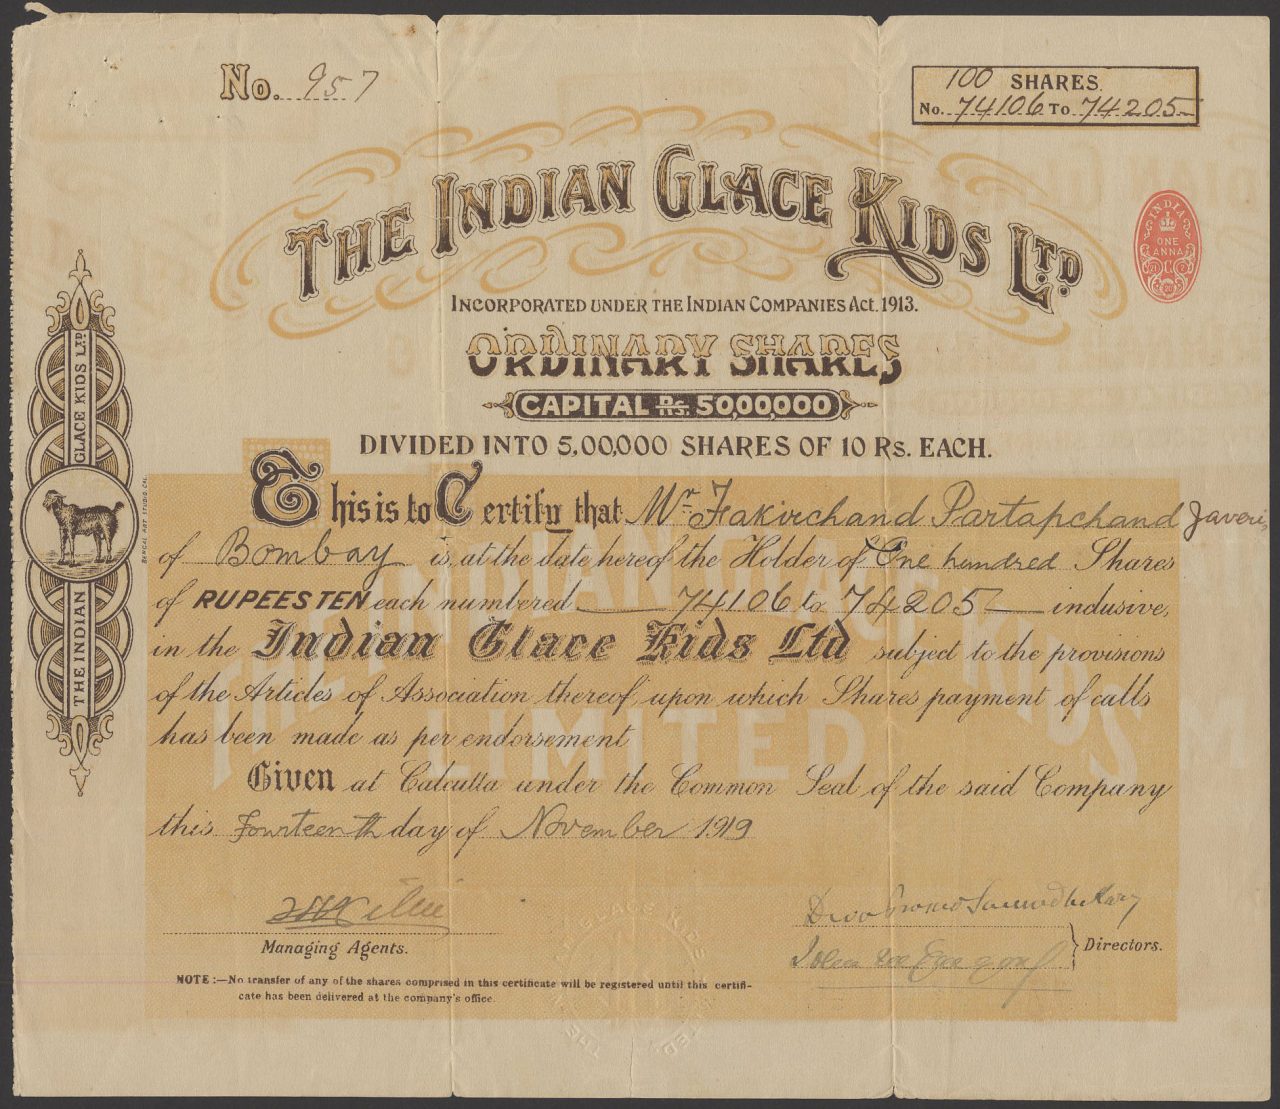 No. 957
100 SHARES.
No. 74106 To 74205
THE INDIAN GLACE KIDS LTD.
INDIA
ONE
ANNA
INCORPORATED UNDER THE INDIAN COMPANIES ACT. 1913.
ORDINARY SHARES
CAPITAL RS. 50,00,000
DIVIDED INTO 5,00,000 SHARES OF 10 RS. EACH.
THE INDIAN GLACE KIDS LTD
BENGAL ART STUDIO, CAL.
This is to Certify that Mr. Fakirchand Partapchand Javeri,
of Bombay is, at the date hereof the Holder of One hundred Shares
of RUPEES TEN each numbered 74106 to 74205 inclusive,
in the Indian Glace Kids Ltd subject to the provisions
of the Articles of Association thereof, upon which Shares payment of calls
has been made as per endorsement
Given at Calcutta under the Common Seal of the said Company
this Fourteenth day of November 1919
THE INDIAN GLACE KIDS
LIMITED
Managing Agents.
Directors.
NOTE :—No transfer of any of the shares comprised in this certificate will be registered until this certifi-
cate has been delivered at the company's office.